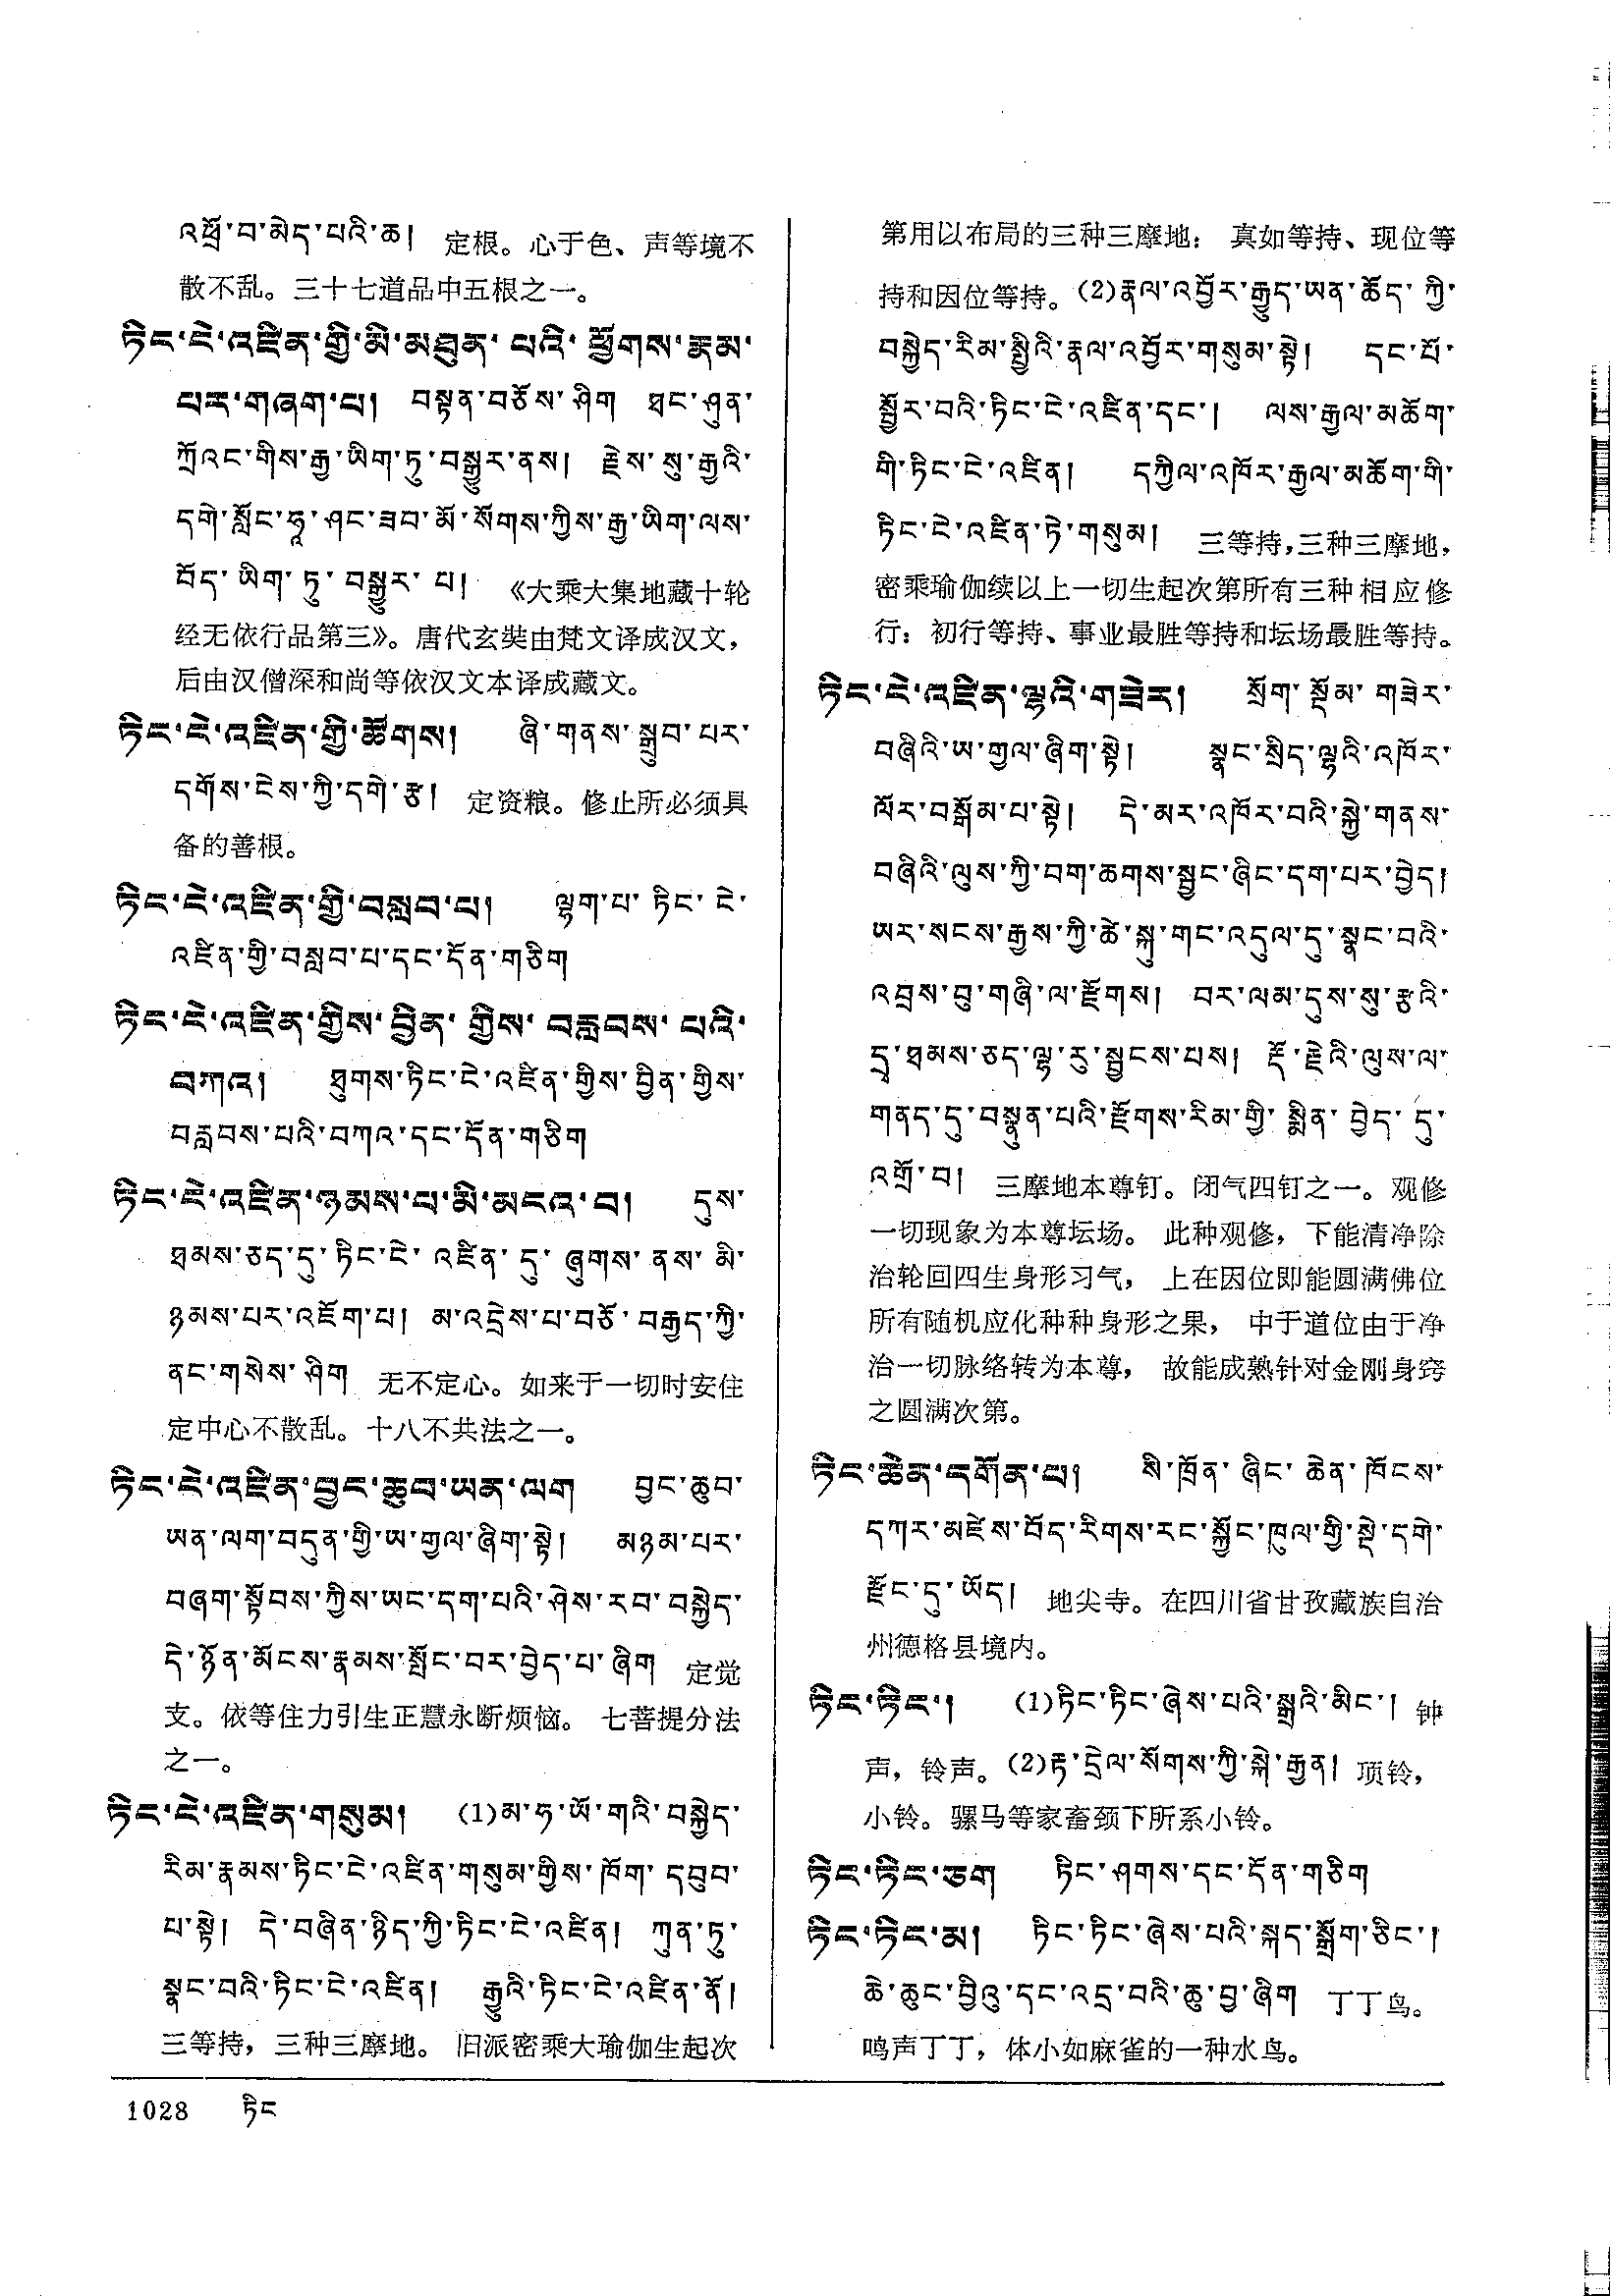 འཕྲོ་བ་མེད་པའི་ཆ། 定根。心于色、声等境不
散不乱。三十七道品中五根之一。
ཏིང་ངེ་འཛིན་གྱི་མི་མཐུན་པའི་ཕྱོགས་རྣམ་
པར་གཞག་པ། བསྟན་བཅོས་ཤིག ཐང་ཤུན་
ཀྲོའང་གིས་རྒྱ་ཡིག་ཏུ་བསྒྱུར་ནས། རྗེས་སུ་རྒྱའི་
དགེ་སློང་ཧྭ་ཤང་ཟབ་མོ་སོགས་ཀྱིས་རྒྱ་ཡིག་ལས་
བོད་ཡིག་ཏུ་བསྒྱུར་པ། 《大乘大集地藏十轮
经无依行品第三》。唐代玄奘由梵文译成汉文，
后由汉僧深和尚等依汉文本译成藏文。
ཏིང་ངེ་འཛིན་གྱི་ཚོགས། ཞི་གནས་སྒྲུབ་པར་
དགོས་ངེས་ཀྱི་དགེ་རྩ། 定资粮。修止所必须具
备的善根。
ཏིང་ངེ་འཛིན་གྱི་བསླབ་པ། ལྷག་པ་ཏིང་ངེ་
འཛིན་གྱི་བསླབ་པ་དང་དོན་གཅིག
ཏིང་ངེ་འཛིན་གྱིས་བྱིན་གྱིས་བརླབས་པའི་
བཀའ། ཐུགས་ཏིང་ངེ་འཛིན་གྱིས་བྱིན་གྱིས་
བརླབས་པའི་བཀའ་དང་དོན་གཅིག
ཏིང་ངེ་འཛིན་ཉམས་པ་མི་མངའ་བ། དུས་
ཐམས་ཅད་དུ་ཏིང་ངེ་འཛིན་དུ་ཞུགས་ནས་མི་
ཉམས་པར་འཇོག་པ། མ་འདྲེས་པ་བཅོ་བརྒྱད་ཀྱི་
ནང་གསེས་ཤིག 无不定心。如来于一切时安住
定中心不散乱。十八不共法之一。
ཏིང་ངེ་འཛིན་བྱང་ཆུབ་ཡན་ལག བྱང་ཆུབ་
ཡན་ལག་བདུན་གྱི་ཡ་གྱལ་ཞིག་སྟེ། མཉམ་པར་
བཞག་སྟོབས་ཀྱིས་ཡང་དག་པའི་ཤེས་རབ་བསྐྱེད་
དེ་ཉོན་མོངས་རྣམས་སྤོང་བར་བྱེད་པ་ཞིག 定觉
支。依等住力引生正慧永断烦恼。 七菩提分法
之一。
ཏིང་ངེ་འཛིན་གསུམ། (1)མ་ཧ་ཡོ་གའི་བསྐྱེད་
རིམ་རྣམས་ཏིང་ངེ་འཛིན་གསུམ་གྱིས་ཁོག་དབུབ་
པ་སྟེ། དེ་བཞིན་ཉིད་ཀྱི་ཏིང་ངེ་འཛིན། ཀུན་ཏུ་
སྣང་བའི་ཏིང་ངེ་འཛིན། རྒྱུའི་ཏིང་ངེ་འཛིན་ནོ།
三等持，三种三摩地。 旧派密乘大瑜伽生起次
第用以布局的三种三摩地： 真如等持、现位等
持和因位等持。(2)རྣལ་འབྱོར་རྒྱུད་ཡན་ཆོད་ཀྱི་
བསྐྱེད་རིམ་སྤྱིའི་རྣལ་འབྱོར་གསུམ་སྟེ། དང་པོ་
སྦྱོར་བའི་ཏིང་ངེ་འཛིན་དང་། ལས་རྒྱལ་མཆོག་
གི་ཏིང་ངེ་འཛིན། དཀྱིལ་འཁོར་རྒྱལ་མཆོག་གི་
ཏིང་ངེ་འཛིན་ཏེ་གསུམ། 三等持，三种三摩地，
密乘瑜伽续以上一切生起次第所有三种相应修
行：初行等持、事业最胜等持和坛场最胜等持。
ཏིང་ངེ་འཛིན་ལྷའི་གཟེར། སྲོག་སྡོམ་གཟེར་
བཞིའི་ཡ་གྱལ་ཞིག་སྟེ། སྣང་སྲིད་ལྷའི་འཁོར་
ལོར་བསྒོམ་པ་སྟེ། དེ་མར་འཁོར་བའི་སྐྱེ་གནས་
བཞིའི་ལུས་ཀྱི་བག་ཆགས་སྦྱང་ཞིང་དག་པར་བྱེད།
ཡར་སངས་རྒྱས་ཀྱི་ཚེ་སྐུ་གང་འདུལ་དུ་སྣང་བའི་
འབྲས་བུ་གཞི་ལ་རྫོགས། བར་ལམ་དུས་སུ་རྩའི་
དྲྭ་ཐམས་ཅད་ལྷ་རུ་སྦྱངས་པས། རྡོ་རྗེའི་ལུས་ལ་
གནད་དུ་བསྣུན་པའི་རྫོགས་རིམ་གྱི་སྨིན་བྱེད་དུ་
འགྲོ་བ། 三摩地本尊钉。闭气四钉之一。观修
一切现象为本尊坛场。 此种观修，下能清净除
治轮回四生身形习气， 上在因位即能圆满佛位
所有随机应化种种身形之果， 中于道位由于净
治一切脉络转为本尊， 故能成熟针对金刚身窍
之圆满次第。
ཏིང་ཆེན་དགོན་པ། སི་ཁྲོན་ཞིང་ཆེན་ཁོངས་
དཀར་མཛེས་བོད་རིགས་རང་སྐྱོང་ཁུལ་གྱི་སྡེ་དགེ་
རྫོང་དུ་ཡོད། 地尖寺。在四川省甘孜藏族自治
州德格县境内。
ཏིང་ཏིང་། (1)ཏིང་ཏིང་ཞེས་པའི་སྒྲའི་མིང་། 钟
声，铃声。(2)རྟ་དྲེལ་སོགས་ཀྱི་སྐེ་རྒྱན། 项铃，
小铃。骡马等家畜颈下所系小铃。
ཏིང་ཏིང་ཅག ཏིང་ཤགས་དང་དོན་གཅིག
ཏིང་ཏིང་མ། ཏིང་ཏིང་ཞེས་པའི་སྐད་སྒྲོག་ཅིང་།
ཆེ་ཆུང་བྱིའུ་དང་འདྲ་བའི་ཆུ་བྱ་ཞིག 丁丁鸟。
鸣声丁丁，体小如麻雀的一种水鸟。
1028 ཏིང